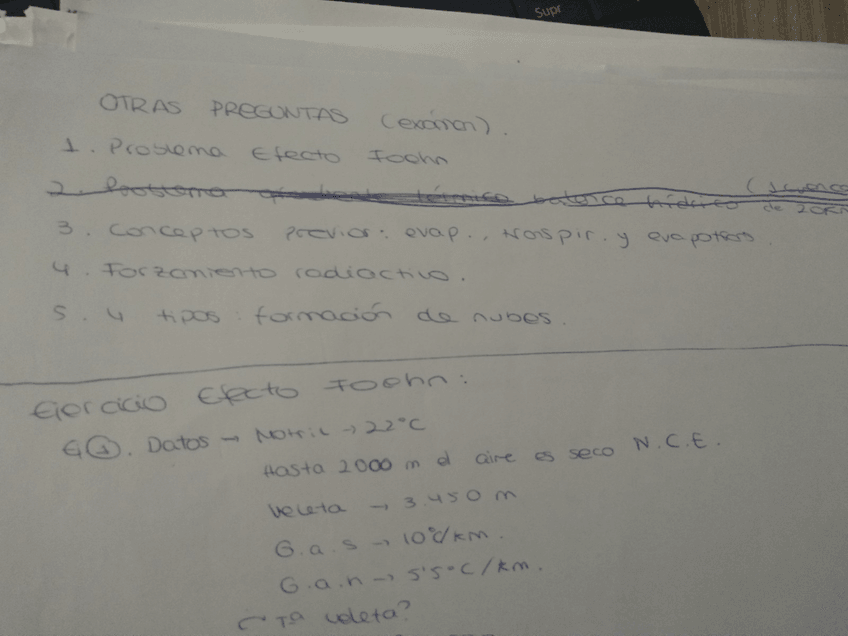 Supr
OTRAS PREGUNTAS (exámen).
1. Problema Efecto Foehn
2. Problema gradiente térmico balance hídrico
de 20km
3. Conceptos previos: evap., traspir. y evapotras.
4. Forzamiento radiactivo.
5. 4 tipos: formación de nubes.
Ejercicio Efecto Foehn:
Datos → Motril → 22°C
Hasta 2000 m el aire es seco N.C.E.
Veleta → 3.450 m
G.a.s → 10°C/km.
G.a.h → 5'5°C/km.
¿Tª veleta?